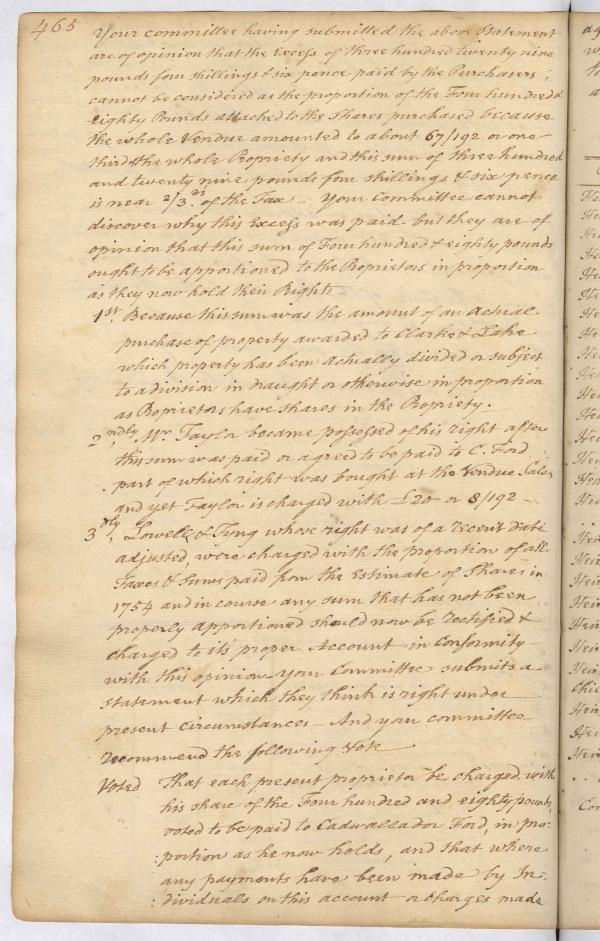 465
Your committee having submitted the above Statement
are of opinion that the Excess of three hundred twenty nine
pounds four shillings & six pence paid by the Purchasers,
cannot be considered as the proportion of the Four hundred &
Eighty Pounds attached to the Shares purchased because
the whole Vendue amounted to about 67/192 or one
third of the whole Propriety and this sum of three hundred
and twenty nine pounds four shillings & six pence
is near 2/3ds of the Tax – Your Committee cannot
discover why this Excess was paid but they are of
opinion that this sum of Four hundred & eighty pounds
ought to be apportioned to the Proprietors in proportion
as they now hold their Right –
1st. Because this sum was the amount of an actual
purchase of property awarded to Clarke & Lake
which property has been actually divided or subject
to a division in draught or otherwise in proportion
as Proprietors have shares in the Propriety.
2ndly, Mr. Taylor became possessed of his right after
this sum was paid or agreed to be paid to C. Ford
part of which right was bought at the Vendue Sales
and yet Taylor is charged with £20 or 8/192 –
3dly, Lowell & Tyng whose right was of a recent date
adjusted, were charged with the proportion of all
Taxes & Sums paid from the Estimate of Shares in
1754 and in course any sum that has not been
properly apportioned should now be rectified &
charged to its proper Account – in Conformity
with this opinion your Committee submits a
statement which they think is right under
present circumstances – And your committee
recommend the following Vote
Voted That each present proprietor be charged with
his share of the Four hundred and eighty pounds,
voted to be paid to Cadwallador Ford, in pro-
:portion as he now holds, and that where
any payments have been made by In-
:dividuals on this account or charges made